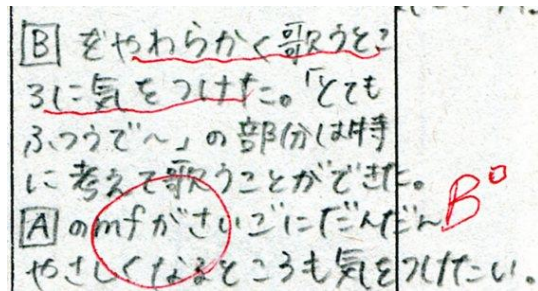 B をやわらかく歌うとこ
ろに気をつけた。「とても
ふつうで〜」の部分は特
に考えて歌うことができた。
A のmfがさいごにだんだん
やさしくなるところも気をつけたい。
B°